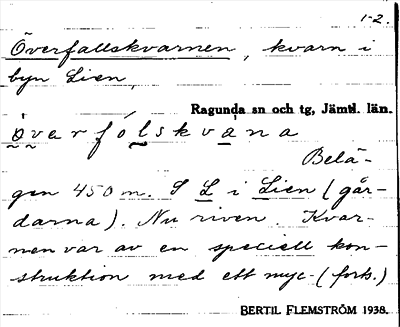 1-2.
Överfallskvarnen, kvarn i
byn Lien,
Ragunda sn och tg, Jämtl. län.
överfólskvàna
Belä-
gen 450 m. S L i Lien (går-
darna). Nu riven. Kvar-
nen var av en speciell kon-
struktion med ett myc- (forts.)
BERTIL FLEMSTRÖM 1938.